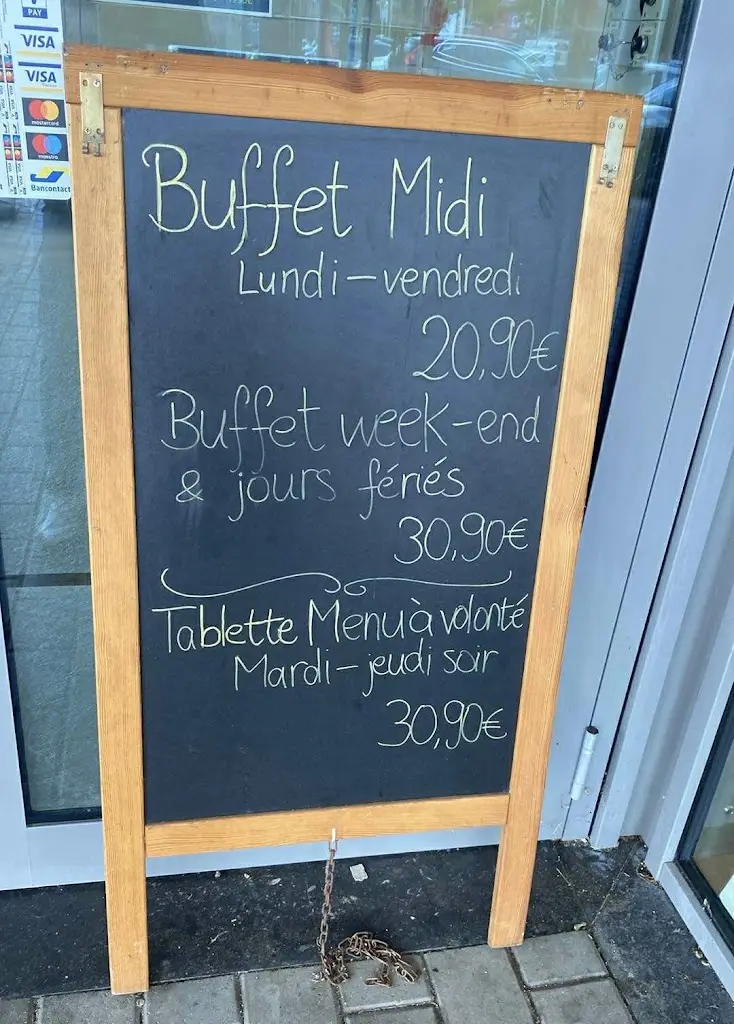 PAY
VISA
VISA
mastercard
maestro
Bancontact
Buffet Midi
Lundi-vendredi
20,90€
Buffet week-end
& jours fériés
30,90€
Tablette Menu à volonté
Mardi-jeudi soir
30,90€